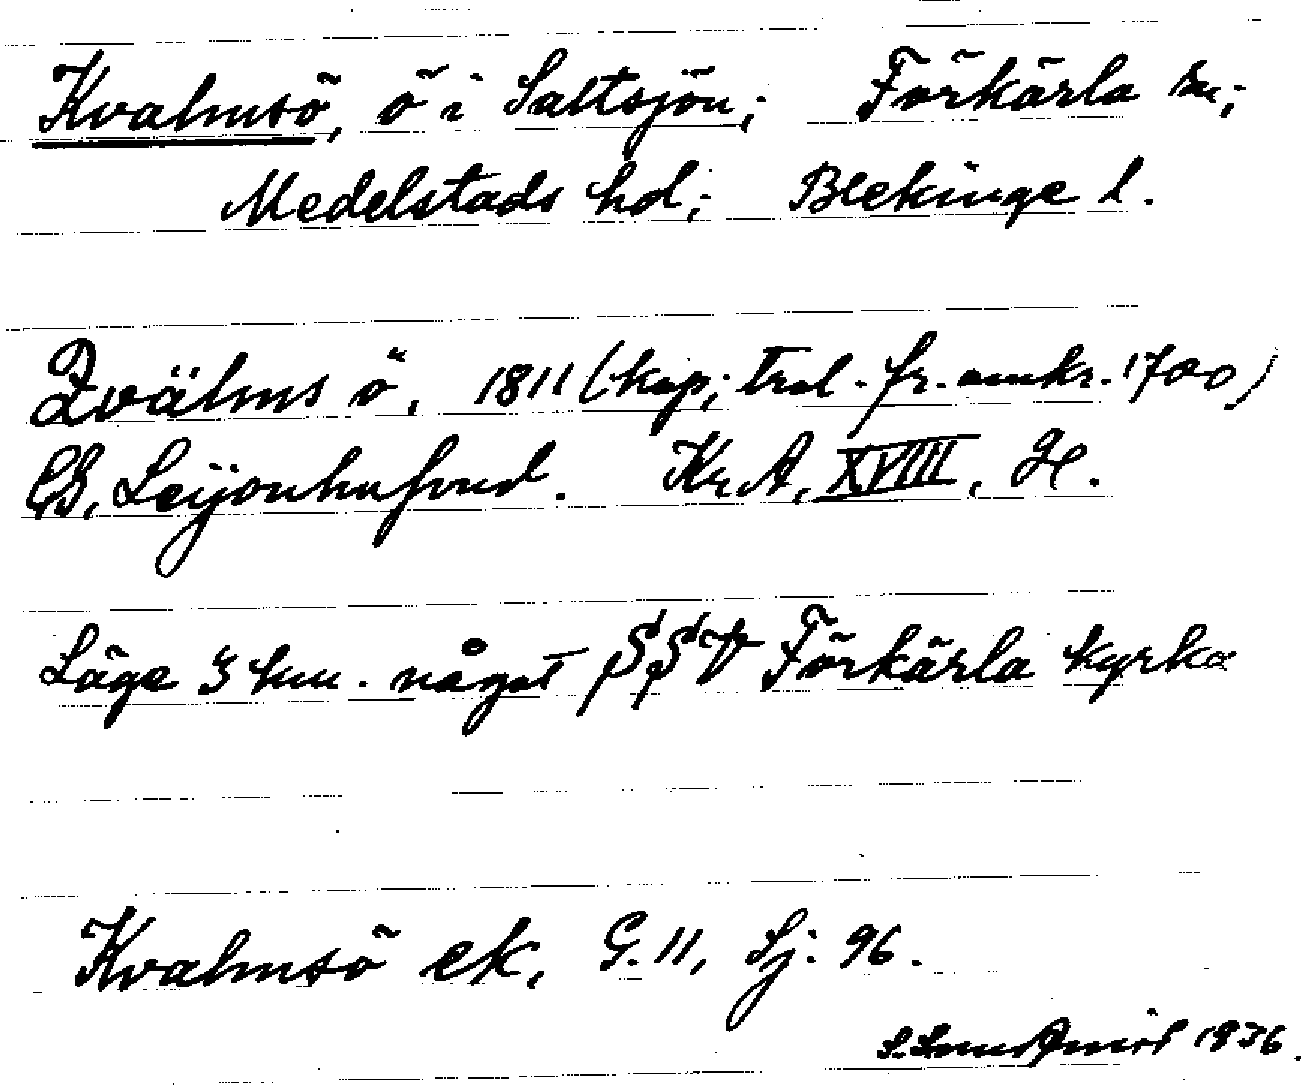 Kvalmsö, ö i Saltsjön; Förkärla sn;
Medelstads hd; Blekinge l.
Qvälms ö, 1811 (kop; trol. fr. omkr. 1700)
CG, Leijonhufvud. Kr. A, XVIII, H.
Läge 3 km. något SSV Förkärla kyrka
Kvalmsö ek, G. 11, Sj. 96.
1936.